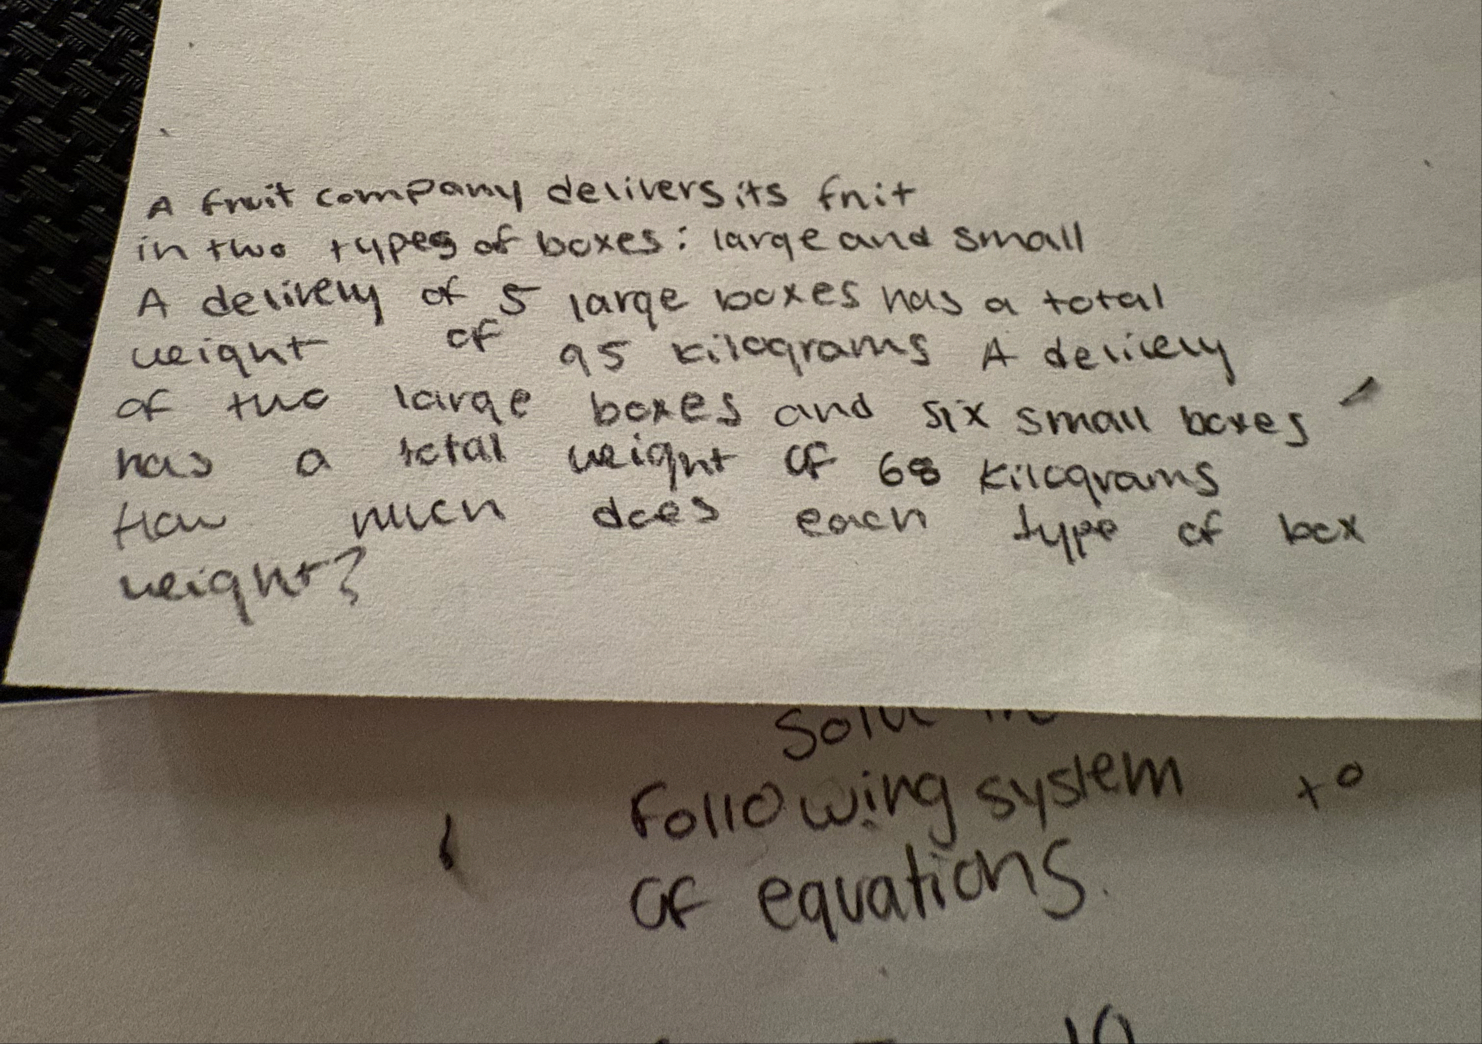 A fruit company delivers its fruit
in two types of boxes: large and small
A delivery of 5 large boxes has a total
weight of 95 kilograms A delivery
of two large boxes and six small boxes
has a total weight of 68 kilograms
How much does each type of box
weight?
Following system to
of equations.
10